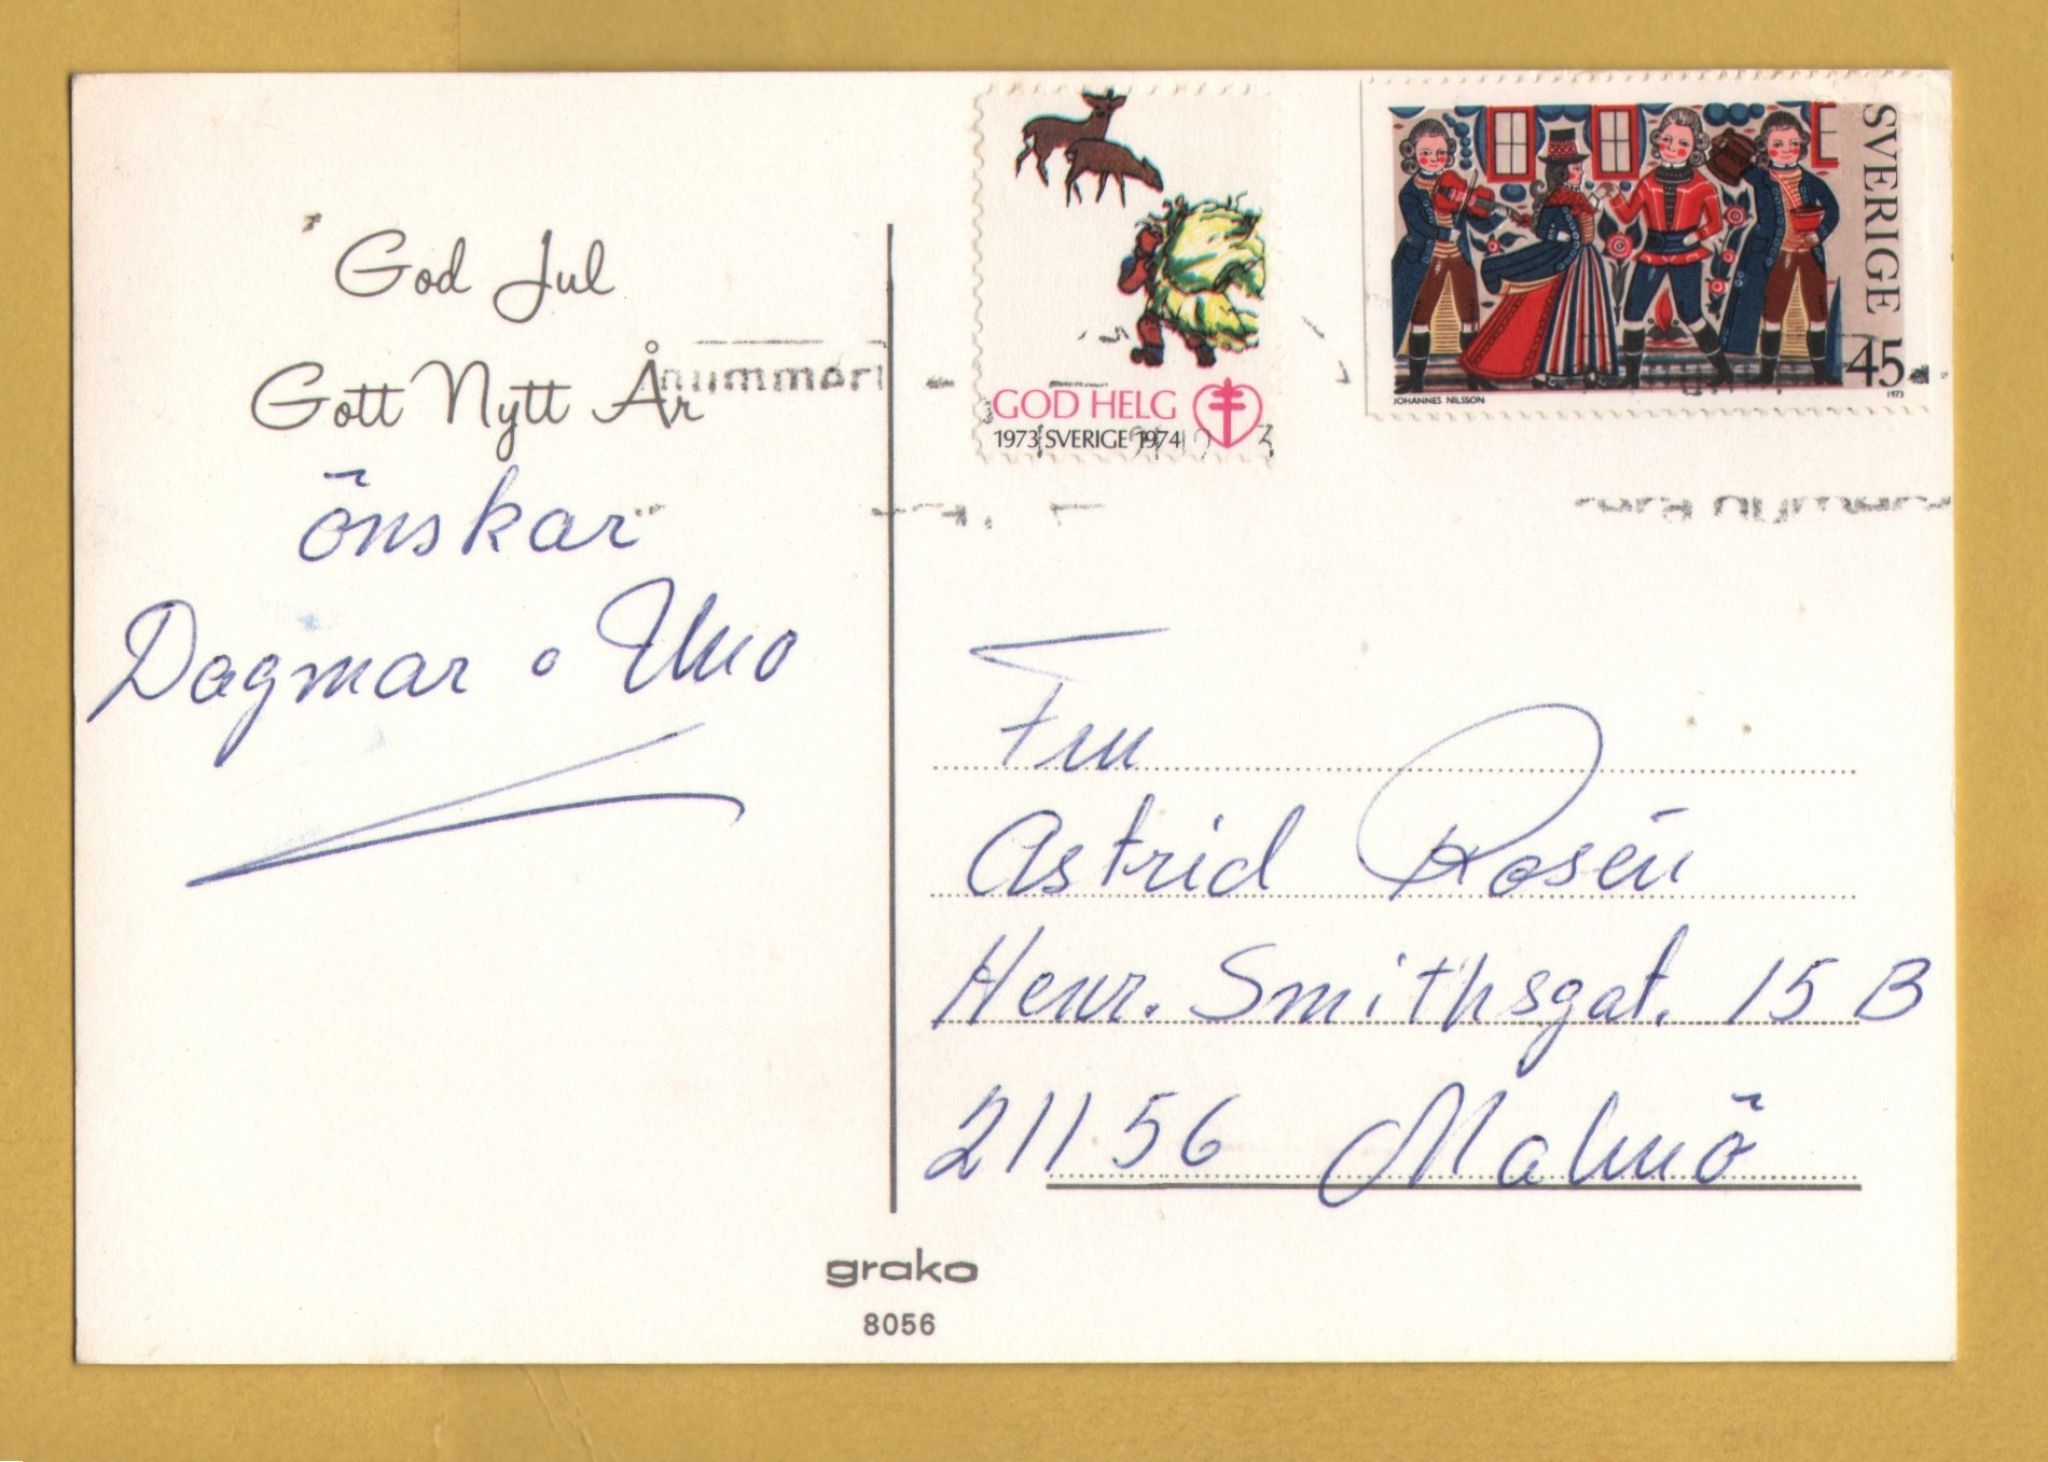 God Jul
Gott Nytt År
önskar
Dagmar o Uno
GOD HELG
1973 SVERIGE 1974
SVERIGE
45
JOHANNES NILSSON
1973
nummer
Fru
Astrid Rosén
Henr. Smithsgat. 15 B
21156 Malmö
grako
8056